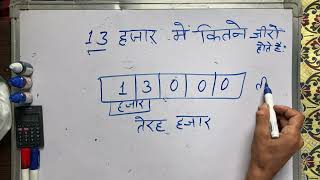 13 हजार में कितने जीरो
होते है.
1 3 0 0 0
हजार
तेरह हजार